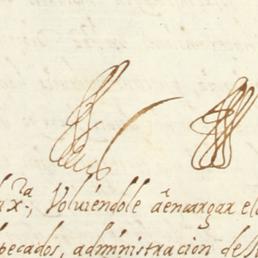 Volviendole á encargar el
pecados, administracion de